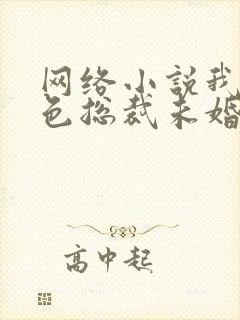 网络小说我
色总裁未婚
高中起